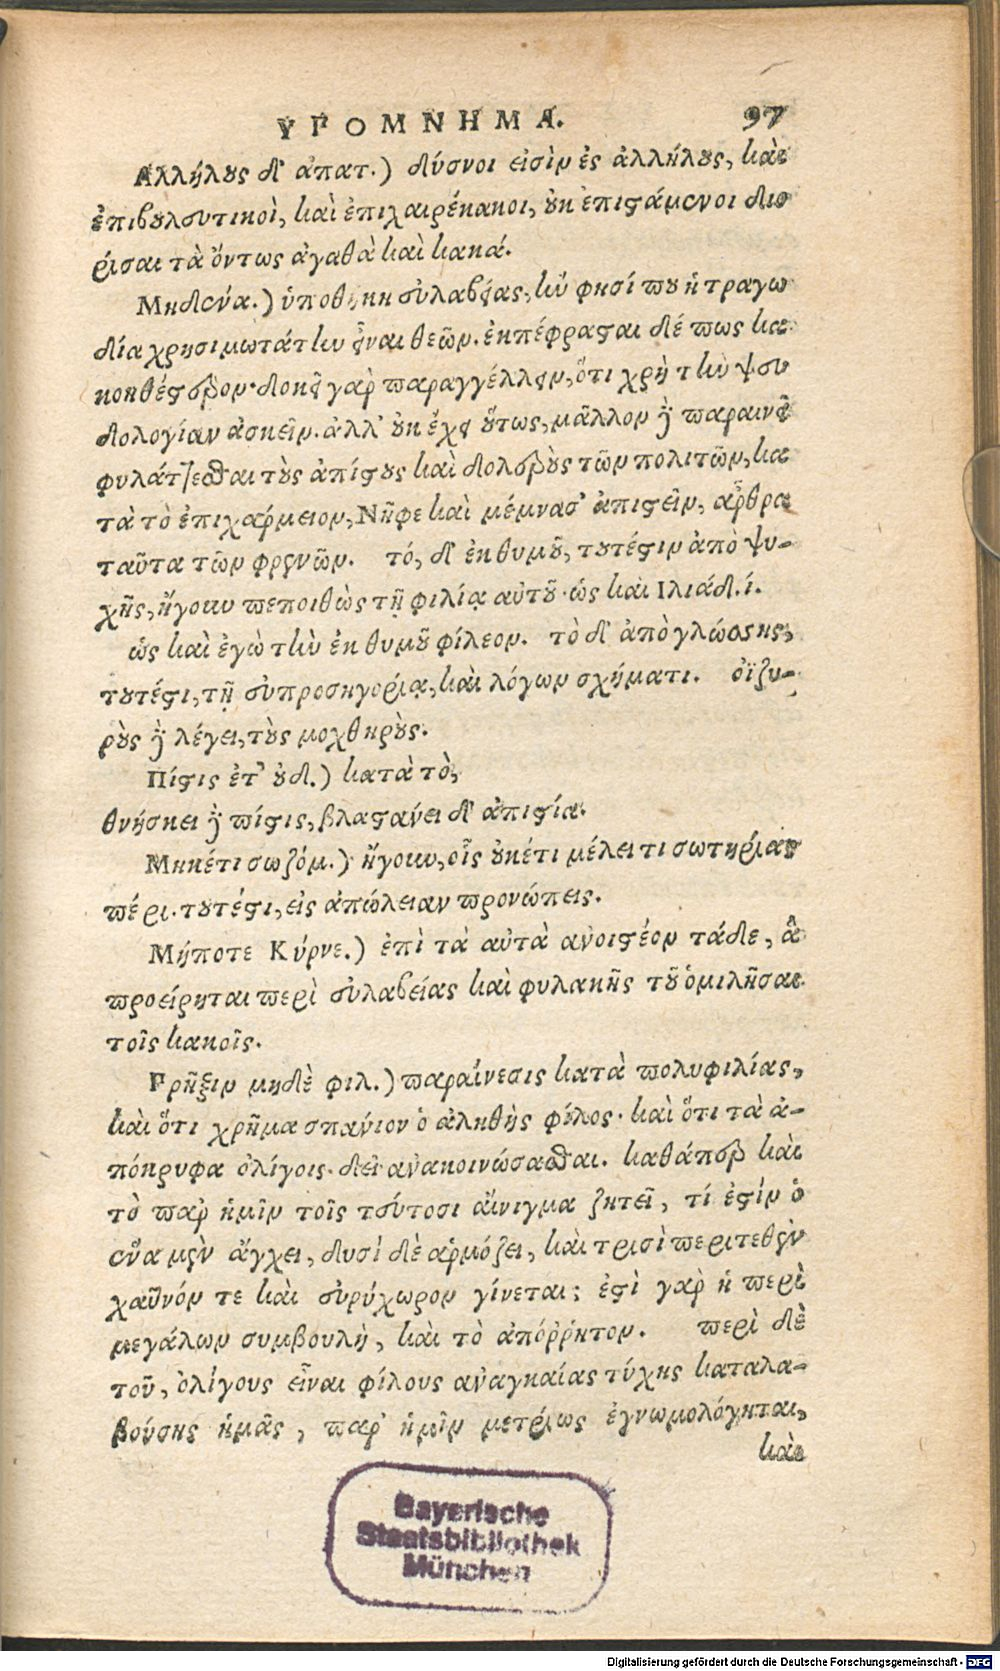 ΥΠΟΜΝΗΜΑ. 97
Αλλήλους δ' ἀπατ.) δύσνοι εἰσὶν ἐς ἀλλήλους, καὶ
ἐπιβουλευτικοὶ, καὶ ἐπιχαιρέκακοι, οὐκ ἐπιστάμενοι διο
ρίσαι τὰ ὄντως ἀγαθὰ καὶ κακά.
Μηδένα.) ὑποθήκη εὐλαβείας, ἣν φησί που ἡ τραγῳ
δία χρησιμωτάτην εἶναι θεῶν. ἐκπέφρασται δέ πως κα
κοηθέστερον· δοκεῖ γὰρ παραγγέλλειν, ὅτι χρὴ τὴν ψευ
δολογίαν ἀσκεῖν. ἀλλ' οὐκ ἔχει οὕτως, μᾶλλον δὲ παραινεῖ
φυλάττεσθαι τοὺς ἀπίστους καὶ δολεροὺς τῶν πολιτῶν, κα
τὰ τὸ ἐπιχάρμειον, Νῆφε καὶ μέμνασ' ἀπιστεῖν, ἄρθρα
ταῦτα τῶν φρενῶν. τό, δ' ἐκ θυμοῦ, τουτέστιν ἀπὸ ψυ-
χῆς, ἤγουν πεποιθὼς τῇ φιλίᾳ αὐτοῦ· ὡς καὶ Ιλιάδ. ί.
ὡς καὶ ἐγὼ τὴν ἐκ θυμοῦ φίλεον. τὸ δ' ἀπὸ γλώσσης,
τουτέστι, τῇ εὐπροσηγορίᾳ, καὶ λόγων σχήματι. οἰζυ-
ροὺς δὲ λέγει, τοὺς μοχθηρούς.
Πίστις ἔτ' οὐδ.) κατὰ τὸ,
θνήσκει δὲ πίστις, βλαστάνει δ' ἀπιστία.
Μηκέτι σωζόμ.) ἤγουν, οἷς οὐκέτι μέλει τι σωτηρίας
πέρι. τουτέστι, εἰς ἀπώλειαν προνώπεις.
Μήποτε Κύρνε.) ἐπὶ τὰ αὐτὰ ἀνοιστέον τάδε, ἃ
προείρηται περὶ εὐλαβείας καὶ φυλακῆς τοῦ ὁμιλῆσαι
τοῖς κακοῖς.
Πρῆξιν μηδὲ φιλ.) παραίνεσις κατὰ πολυφιλίας,
καὶ ὅτι χρῆμα σπάνιον ὁ ἀληθὴς φίλος· καὶ ὅτι τὰ ἀ-
πόκρυφα ὀλίγοις δεῖ ἀνακοινώσασθαι. καθάπερ καὶ
τὸ παρ' ἡμῖν τοῖς τεύτοσι αἴνιγμα ζητεῖ, τί ἐστὶν ὃ
ἕνα μὲν ἄγχει, δυσὶ δὲ ἁρμόζει, καὶ τρισὶ περιτεθὲν
χαῦνόν τε καὶ εὐρύχωρον γίνεται; ἐστὶ γὰρ ἡ περὶ
μεγάλων συμβουλὴ, καὶ τὸ ἀπόῤῥητον. περὶ δὲ
τοῦ, ὀλίγους εἶναι φίλους ἀναγκαίας τύχης καταλα-
βούσης ἡμᾶς, παρ' ἡμῖν μετρίως ἐγνωμολόγηται,
καὶ
Bayerische
Staatsbibliothek
München
Digitalisierung gefördert durch die Deutsche Forschungsgemeinschaft - DFG